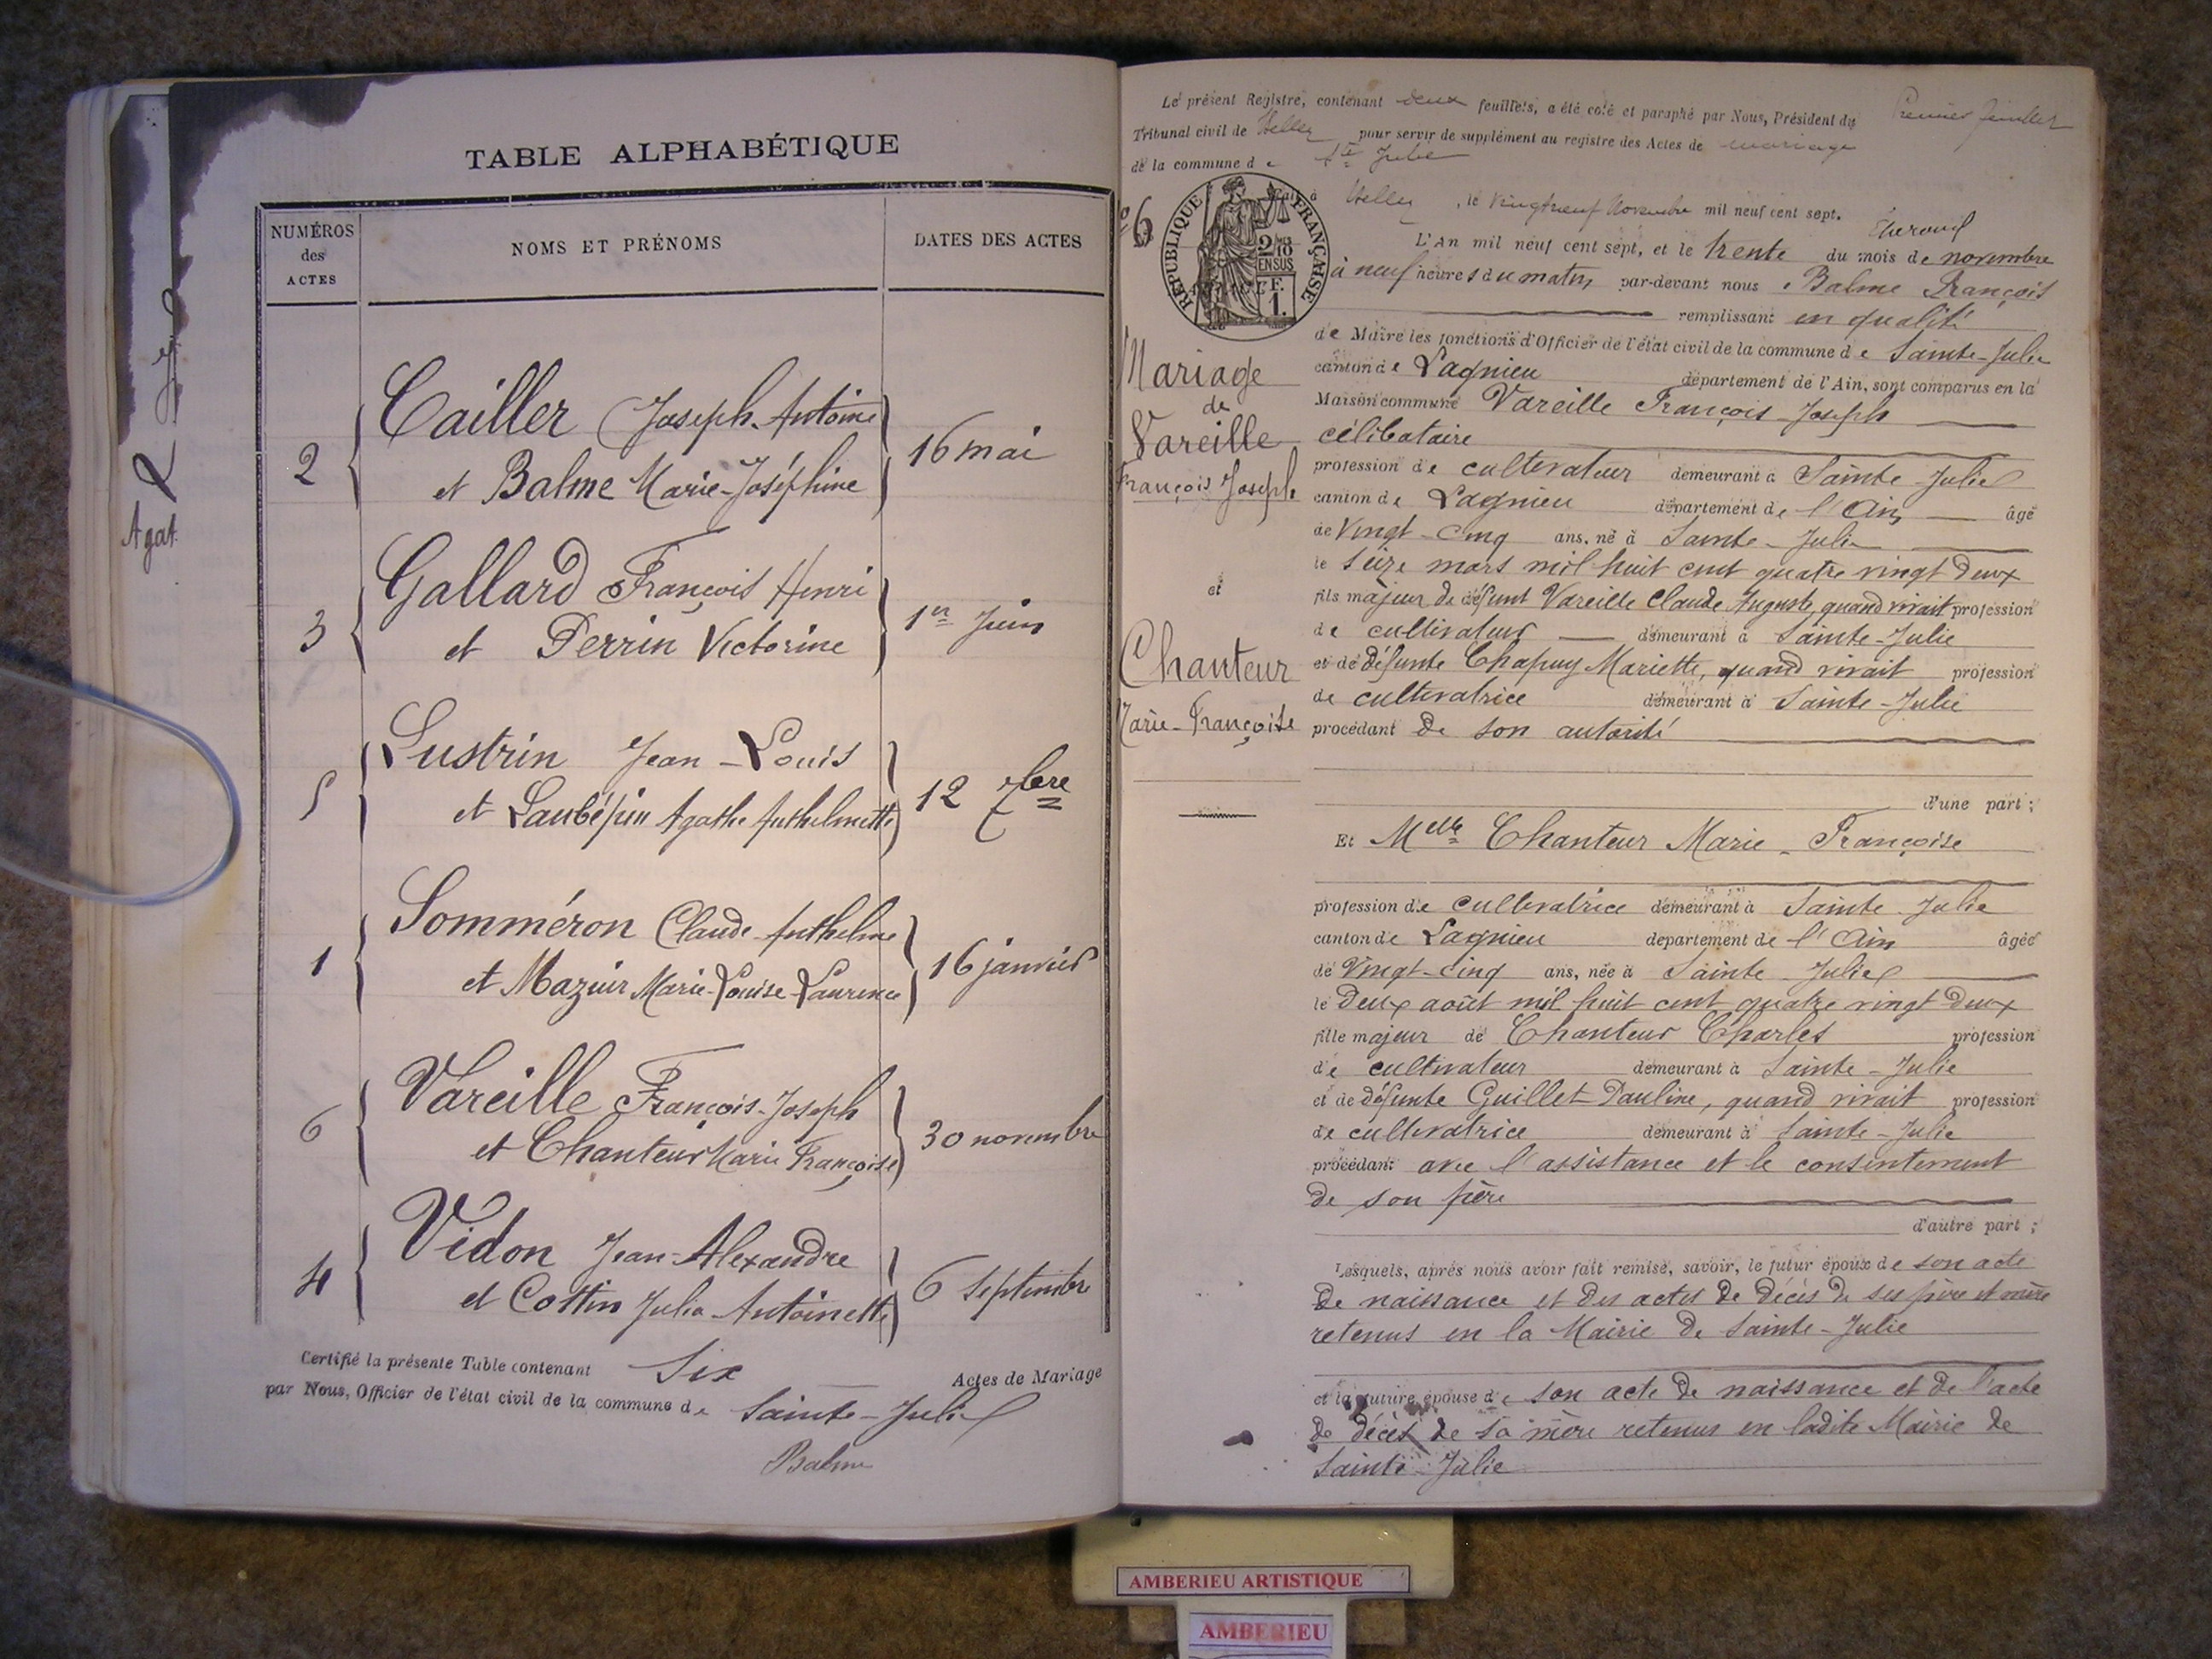 TABLE ALPHABÉTIQUE
NUMÉROS des ACTES
NOMS ET PRÉNOMS
DATES DES ACTES
2 Cailler Joseph-Antoine
et Balme Marie-Joséphine 16 mai
3 Gallard François Henri
et Perrin Victorine 1er Juin
5 Lustrin Jean-Louis
et Laubépin Agathe Anthelmette 12 7bre
1 Somméron Claude-Anthelme
et Mazuir Marie-Louise-Laurence 16 janvier
6 Vareille François-Joseph
et Chanteur Marie Françoise 30 novembre
4 Vidon Jean-Alexandre
et Cottin Julia Antoinette 6 septembre
Certifié la présente Table contenant Six Actes de Mariage
par Nous, Officier de l'état civil de la commune de Sainte-Julie
Balme
Agat
Le présent Registre, contenant deux feuillets, a été coté et paraphé par Nous, Président du
Tribunal civil de pour servir de supplément au registre des Actes de mariage
de la commune de Ste Julie
Premier feuillet
Fait à , le Vingt neuf Novembre mil neuf cent sept.
RÉPUBLIQUE FRANÇAISE
2/10 EN SUS
F.
1.
6
Mariage
de
Vareille
François Joseph
et
Chanteur
Marie-Françoise
L'An mil neuf cent sept, et le trente du mois de novembre
à neuf heures du matin par-devant nous Balme François
remplissant en qualité
de Maire les fonctions d'Officier de l'état civil de la commune de Sainte-Julie
canton de Lagnieu département de l'Ain, sont comparus en la
Maison commune Vareille François-Joseph
célibataire
profession de cultivateur demeurant à Sainte-Julie
canton de Lagnieu département de l'Ain âgé
de Vingt-cinq ans, né à Sainte-Julie
le seize mars mil huit cent quatre vingt deux
fils majeur de défunt Vareille Claude Auguste, quand vivait profession
de cultivateur demeurant à Sainte-Julie
et de défunte Chapuy Mariette, quand vivait profession
de cultivatrice demeurant à Sainte-Julie
procédant de son autorité
d'une part ;
Et Melle Chanteur Marie-Françoise
profession de cultivatrice demeurant à Sainte-Julie
canton de Lagnieu département de l'Ain âgée
de Vingt-cinq ans, née à Sainte-Julie
le deux août mil huit cent quatre vingt deux
fille majeur de Chanteur Charles profession
de cultivateur demeurant à Sainte-Julie
et de défunte Guillet Pauline, quand vivait profession
de cultivatrice demeurant à Sainte-Julie
procédant avec l'assistance et le consentement
de son père
d'autre part ;
Lesquels, après nous avoir fait remise, savoir, le futur époux de son acte
de naissance et des actes de décès de ses père et mère
retenus en la Mairie de Sainte-Julie
et la future épouse de son acte de naissance et de l'acte
de décès de sa mère retenus en ladite Mairie de
Sainte-Julie
AMBERIEU ARTISTIQUE
AMBERIEU